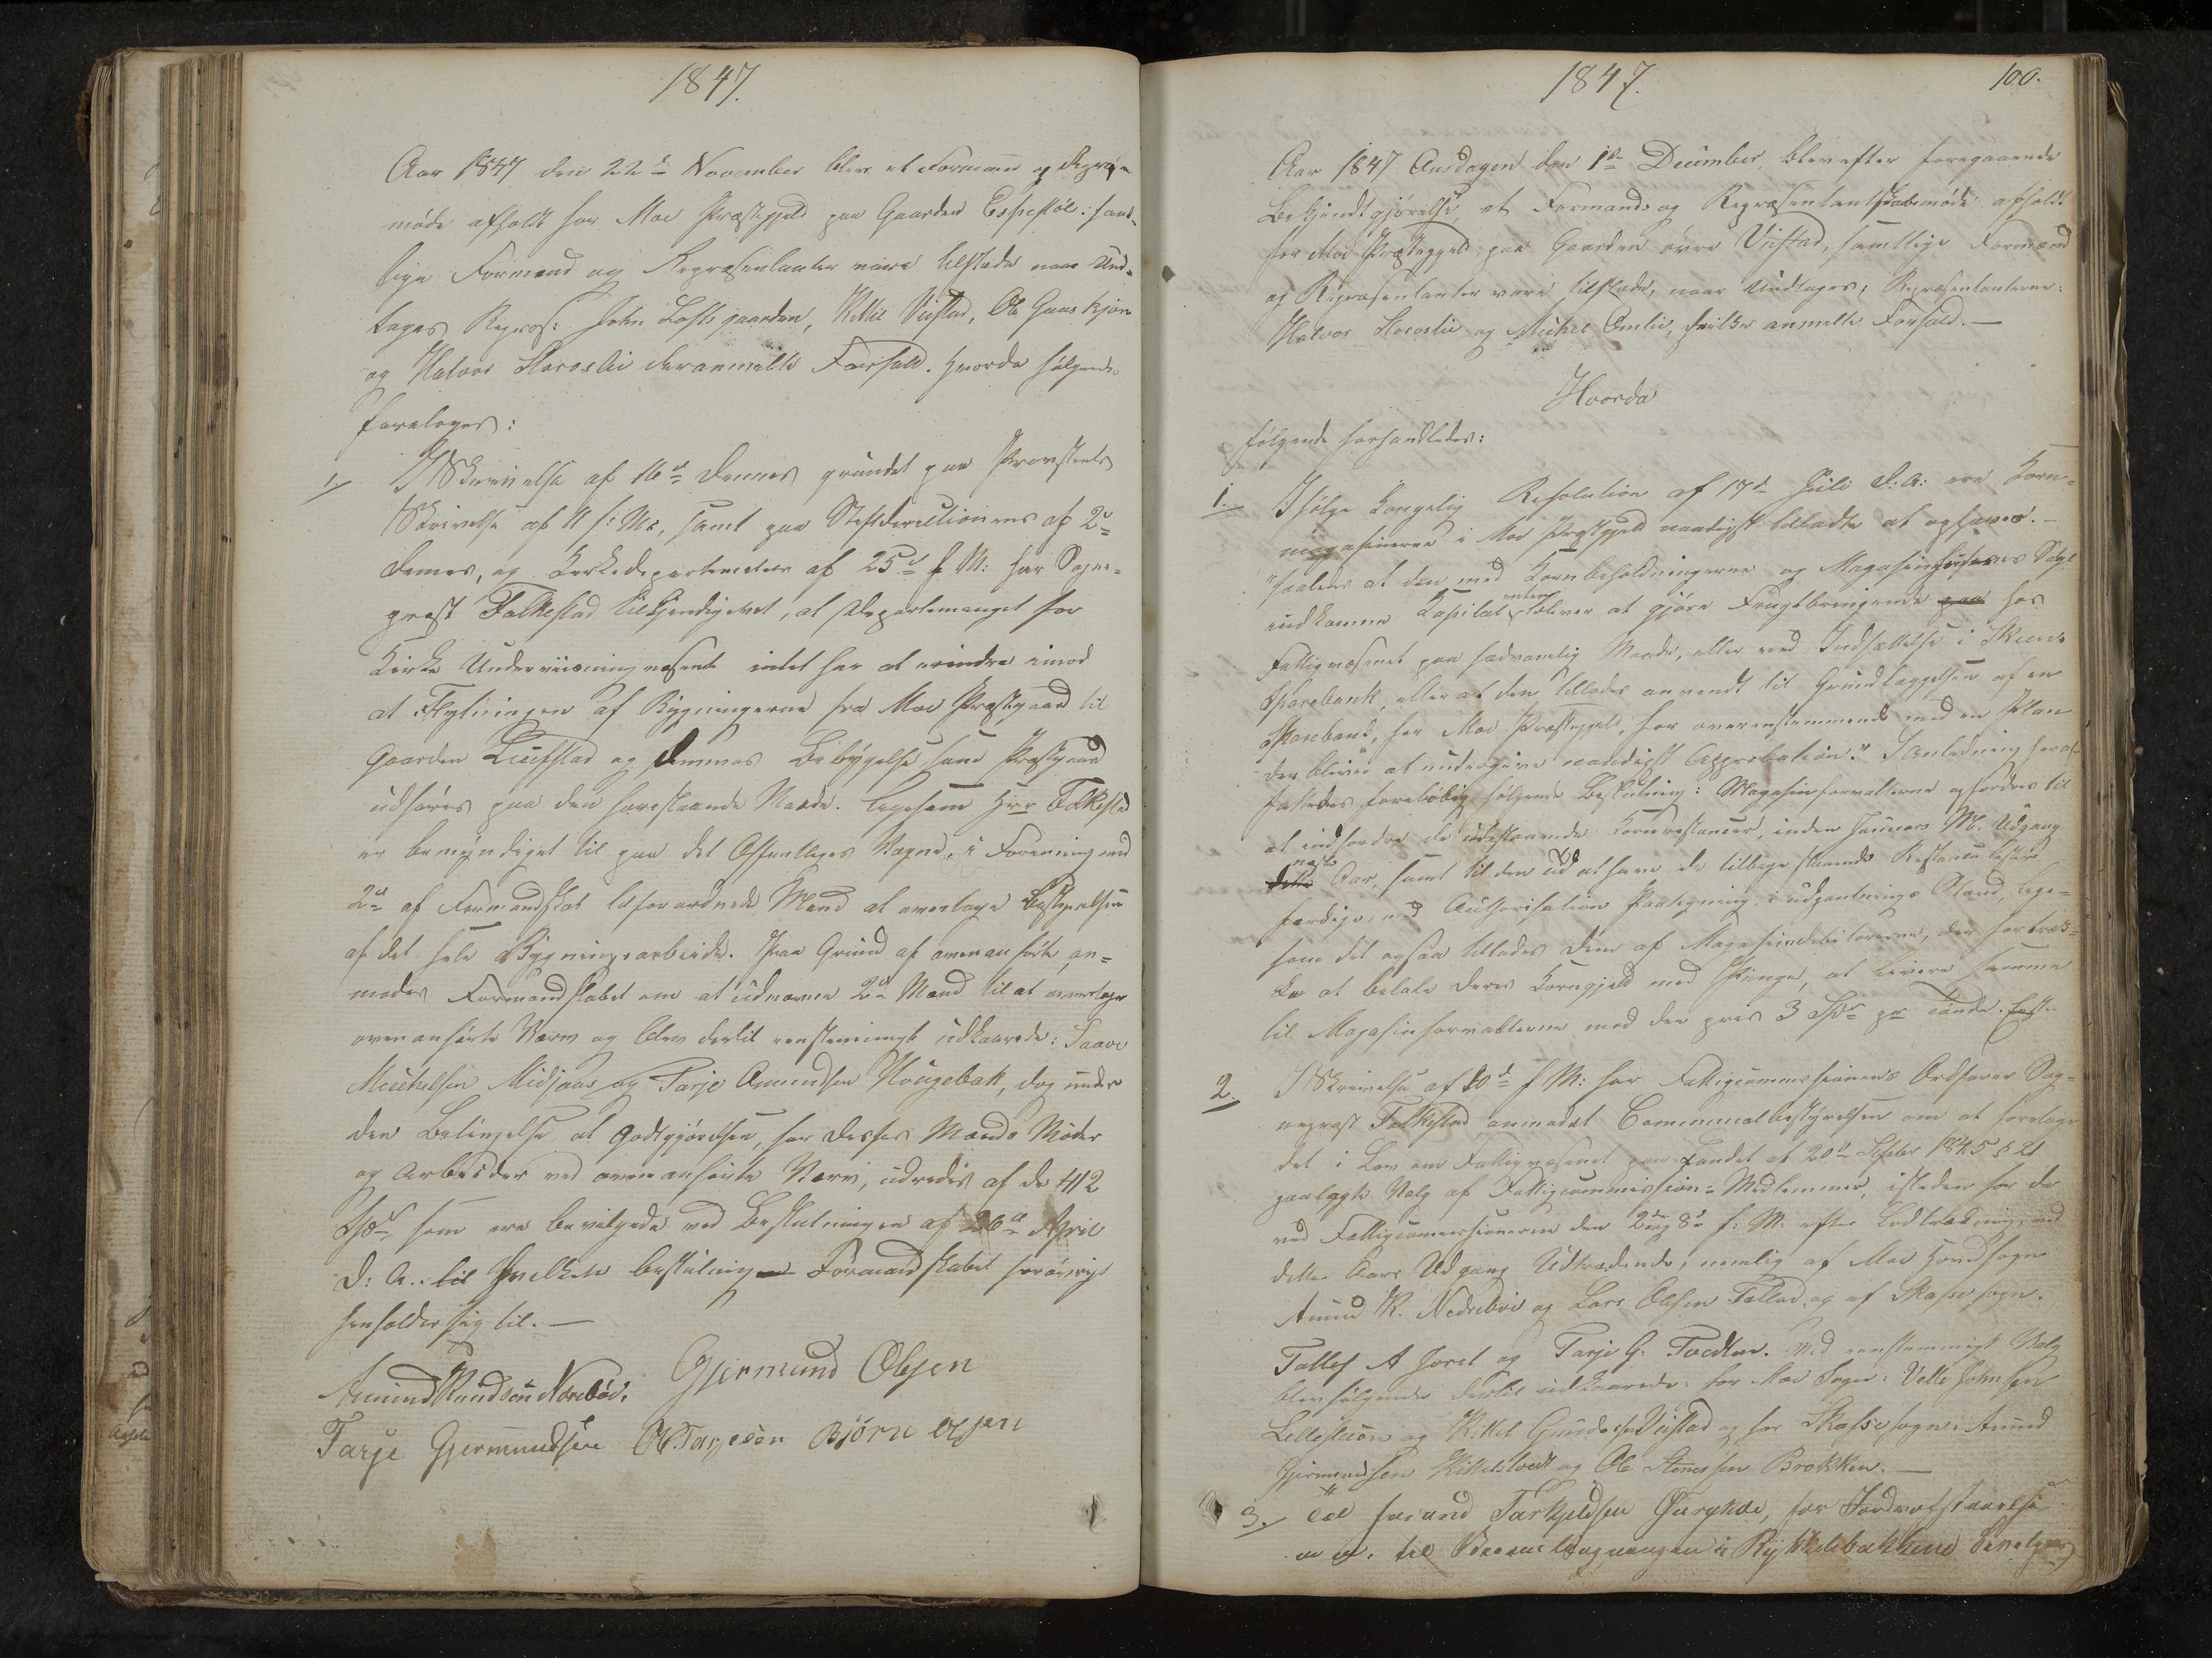 1847.
Aar 1847 den 22de November blev et Formand og Repræsn.
møde afholdt for Moe Præstegjeld paa Gaarden Espestøl: samt-
lige Formænd og Repræsentanter vare tilstæde naar und-
tages Repræs: John Loftsgaarden, Kittil Viistad, Ole Gaaskjøn
og Halvor Storoslie der anmeldte Forfald. Hvorda følgende
foretoges:
1/ I Skrivelse af 16de dennes grundet paa Provstens
Skrivelse af 11 f: M:, samt paa Stiftsdirectionens af 2de
dennes, og Kirkedepartementets af 25de f. M: har Sogne-
præst Falkestad tilkjendegivet, at Departementet for
Kirke Underviisningvæsenet intet har at erindre imod
at Flytningen af Bygningerne fra Moe Præstegaard til
Gaarden Liufstad og dennes Bebygelse som Præstgaard
udføres paa den forestaaende Maade. Ligesom Hrr Falkestad
er bemyndiget til paa det Offentliges Vegne, i Forening med
2de af Formandskabet beordnede Mænd at overtage Bestyrelsen
af det hele Bygningsarbeide. Paa Grund af ovenanførte an-
modes Formandskabet om at udnævne 2de Mænd til at overtage
ovenanførte Værv og blev dertil eenstemmigt udkaarede: Saave
Michelsen Midjaas og Tarje Amundsen Hougebak, dog under
den Betingelse at Godtgjørelsen, for disses Mænds Møder
og Arbeider ved ovenanførte Værv, udredes af de 412
Spd som ere bevilgede ved Beslutningen af 26de April
d: A.. til hvilken Beslutning Formandskabet forøvrigt
henholder sig til. —
Gjermund Olsen
Amund Knudsen Nørebøe.
Tarje Gjermundsen Ol. Tarjesen Bjørn Olsen
1847. 100.
Aar 1847 Onsdagen den 1de December, blev efter foregaaende
Bekjendtgjørelse, et Formands og Repræsentantskabsmøde afholdt
for Moe Præstegjeld paa Gaarden øvre Viistad, samtlige Formænd
og Repræsentanter vare tilstæde, naar undtages, Repræsentanterne:
Halvor Storoslie og Michel Omlie, hvilke anmeldte Forfald. —
Hvorda
følgende forhandledes:
1. Ifølge Kongelig Resolution af 17de Juli d: A: ere Korn-
magasinerne i Moe Præstgjeld naadigst tilladte at ophæves. —
"saaledes at den ved Kornbeholdningerne og Magasinhusenes Salg
indkomne Kapital enten bliver at gjøre Frugtbringende paa hos
Fattigvæsenet paa sædvanlig Maade, eller ved Indsættelse i Skiens
Sparebank, eller at den tillades anvendt til Grundlæggelsen af en
Sparebank, for Moe Præstegjeld, for overensstemmende med en Plan
der bliver at undergive naadigst Approbation." I Anledning heraf
fattedes foreløbig følgende Beslutning: Magasinforvalterne opfordres til
at indfordre de udestaaende Kornrestancer, inden Januars M. Udgang
dette næste Aar, samt til den Tid at have de tilbagestaaende Restancelister
færdige, med Authorisation Paategning, i udpantnings Stand, lige-
som det ogsaa tillades dem af Magasindebitorerne, der fortræk-
ke at betale deres Korngjeld med Penge, at levere samme
til Magasinforvalterne mod den pris 3 Spd pr Tønde.
2. I Skrivelse af 10de f. M: har Fattigcommissionens Ordfører Sog-
nepræst Falkestad anmodet Communalbestyrelsen om at foretage
det i Lov om Fattigvæsenet paa Landet af 20de Septbr 1845 § 21
paalagte Valg af Fattigcommission-Medlemmer, isteden for de
ved Fattigcommissionerne den 2den og 8de f: M. efter Lodtrækning, ved
dette Aars Udgang Udtrædende; nemlig af Moe Hovedsogn
Amund K. Nedrebøe og Lars Olsen Tallad og af Skafse sogn.
Tallef A Jorel og Tarje G. Tvedten. Med eenstemmigt Valg
blev følgende dertil udkaarede: for Moe Sogn: Vetle Johnsen
Lillestuen og Kittil Gundersen Viistad og for Skafse sogn: Amund
Gjermundsen Kittilstvedt og Ole Steinersen Brokken. —
3. Til Torkjeldsen for Jordvafstaaelse
m m. til Veiomlægningen i Rykkelibakkene bevilges